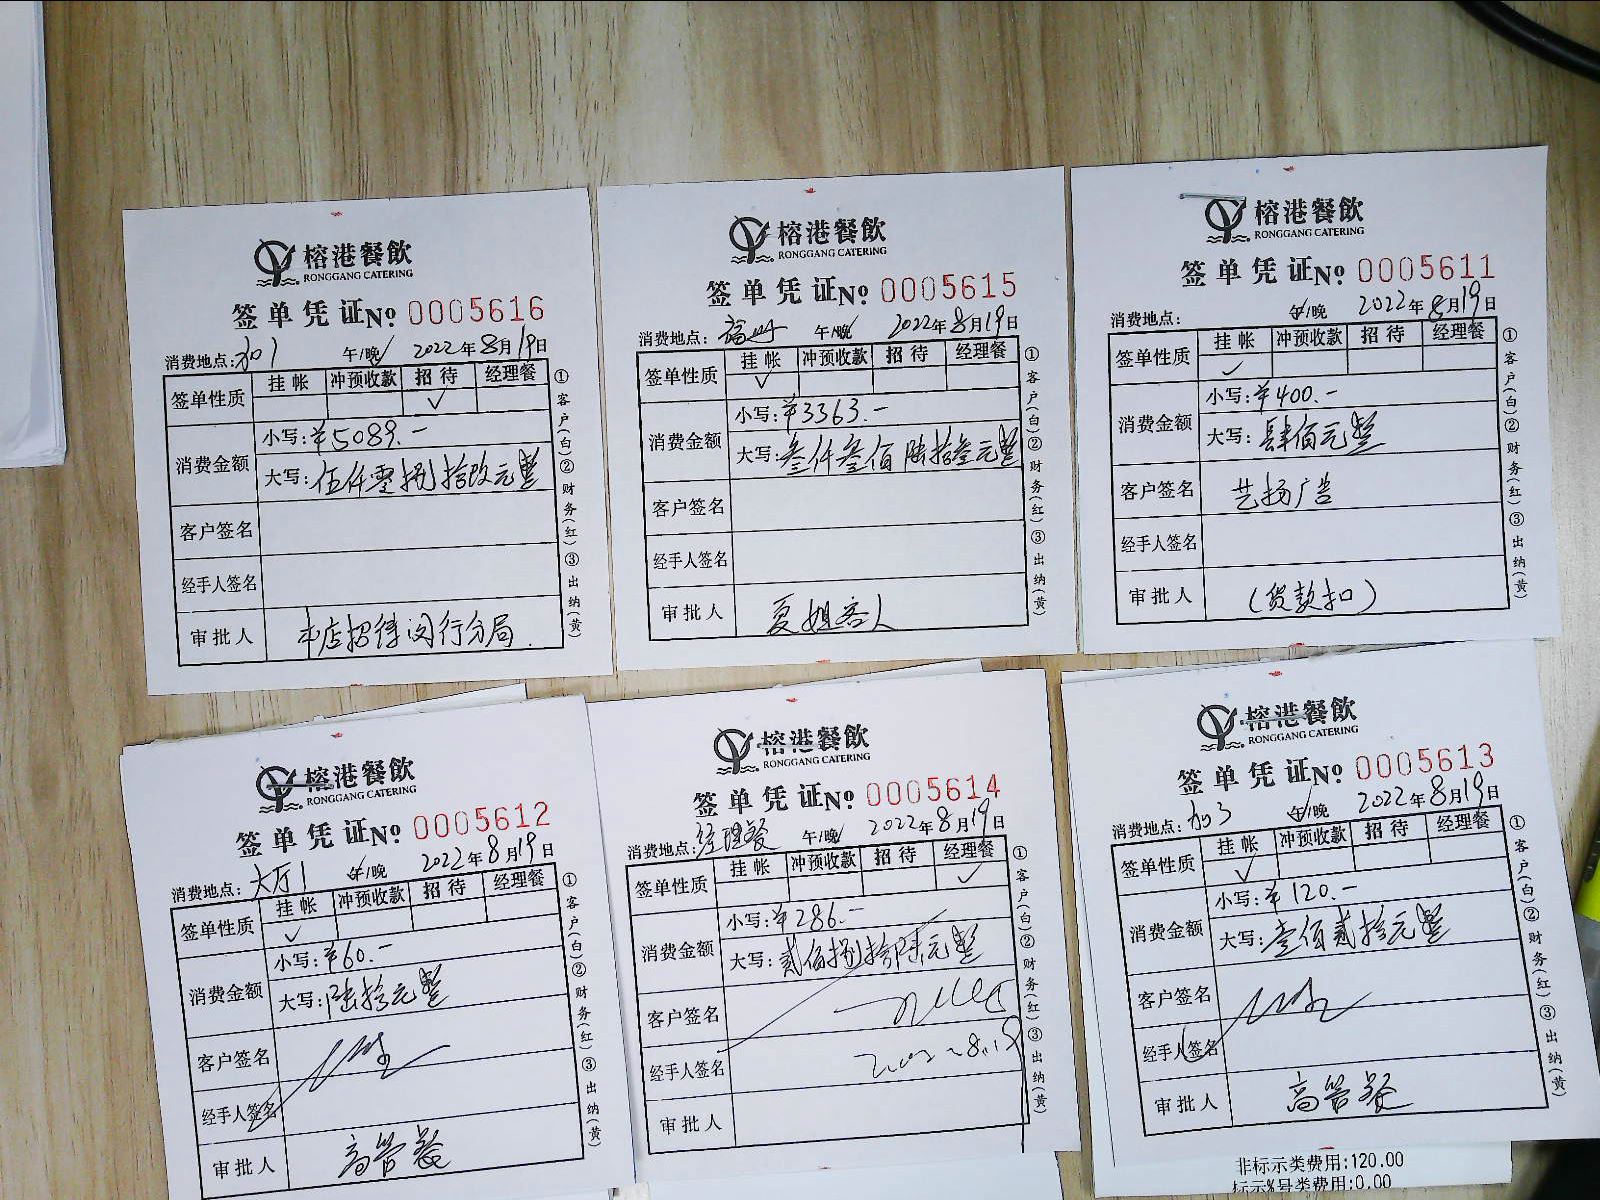 榕港餐飲
RONGGANG CATERING
签单凭证No. 0005616
消费地点: 午/晚 2022年8月19日
签单性质 挂帐 冲预收款 招待 经理餐
✓
消费金额 小写:¥5089.-
大写:伍仟零捌拾玖元整
客户签名
经手人签名
审批人 本店招待闵行分局.
①客户(白)②财务(红)③出纳(黄)
榕港餐飲
RONGGANG CATERING
签单凭证No. 0005615
消费地点: 午/晚 2022年8月19日
签单性质 挂帐 冲预收款 招待 经理餐
✓
消费金额 小写:¥3363.-
大写:叁仟叁佰陆拾叁元整
客户签名
经手人签名
审批人 夏姐客人
①客户(白)②财务(红)③出纳(黄)
榕港餐飲
RONGGANG CATERING
签单凭证No. 0005611
消费地点: 午/晚 2022年8月19日
签单性质 挂帐 冲预收款 招待 经理餐
✓
消费金额 小写:¥400.-
大写:肆佰元整
客户签名 艺扬广告
经手人签名
审批人 (货款扣)
①客户(白)②财务(红)③出纳(黄)
榕港餐飲
RONGGANG CATERING
签单凭证No. 0005612
消费地点:大厅1 午/晚 2022年8月19日
签单性质 挂帐 冲预收款 招待 经理餐
✓
消费金额 小写:¥60.-
大写:陆拾元整
客户签名
经手人签名
审批人 高管餐
①客户(白)②财务(红)③出纳(黄)
榕港餐飲
RONGGANG CATERING
签单凭证No. 0005614
消费地点:经理餐 午/晚 2022年8月19日
签单性质 挂帐 冲预收款 招待 经理餐
✓
消费金额 小写:¥286.-
大写:贰佰捌拾陆元整
客户签名
经手人签名 2022.8.19
审批人
①客户(白)②财务(红)③出纳(黄)
榕港餐飲
RONGGANG CATERING
签单凭证No. 0005613
消费地点:加3 午/晚 2022年8月19日
签单性质 挂帐 冲预收款 招待 经理餐
✓
消费金额 小写:¥120.-
大写:壹佰贰拾元整
客户签名
经手人签名
审批人 高管餐
①客户(白)②财务(红)③出纳(黄)
非标示类费用:120.00
标示%号类费用:0.00